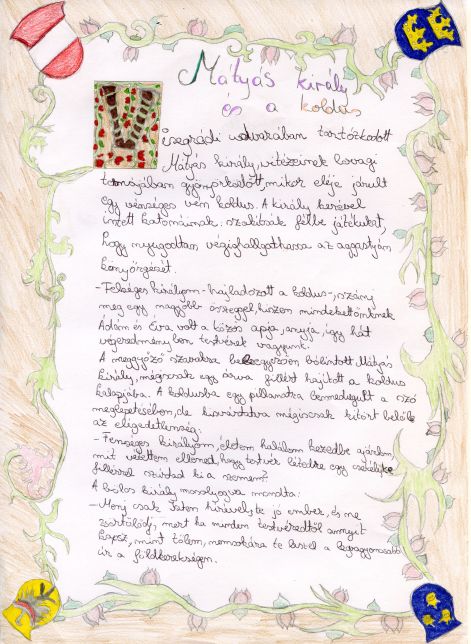 Mátyás király
és a koldus
Visegrádi udvarában tartózkodott
Mátyás király, vitézeinek lovagi
tornájában gyönyörködött, mikor eléje járult
egy vénséges vén koldus. A király kezével
intett katonáinak: szakítsák félbe játékukat,
hogy nyugodtan végighallgathassa az aggastyán
könyörgését.
-Felséges királyom-hajladozott a koldus-, szánj
meg egy nagyobb összeggel, hiszen mindkettőnknek
Ádám és Éva volt a közös apja, anyja, így hát
végeredményben testvérek vagyunk.
A meggyőző szavakra beleegyezően bólintott Mátyás
király, mégiscsak egy árva fillért hajított a koldus
kalapjába. A koldusba egy pillanatra bennedugult a szó
meglepetésében, de kisvártatva mégiscsak kitört belőle
az elégedetlenség:
- Fenséges királyom, életem, halálom kezedbe ajánlom,
mit vétettem ellened, hogy testvér létedre egy
fillérrel szúrtad ki a szemem?
A bölcs király mosolyogva mondta:
- Menj csak Isten hírével, te jó ember, és ne
zsörtölődj, mert ha minden testvéredtől annyit
kapsz, mint tőlem, nemsokára te leszel a leggazdagabb
úr a földkerekségen.